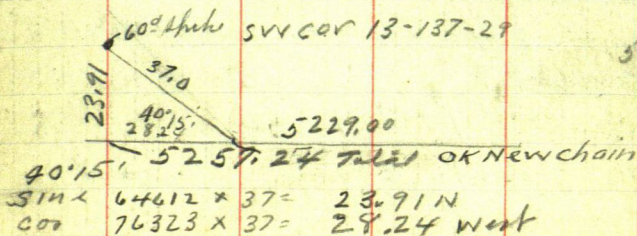 60d spike SW cor 13-137-29
5
37.0
23.91
40°15'
28.2
5229.00
5257.24 Total OK New chain
40°15'
Sine 64612 x 37 = 23.91 N
Cos 76323 x 37 = 28.24 West